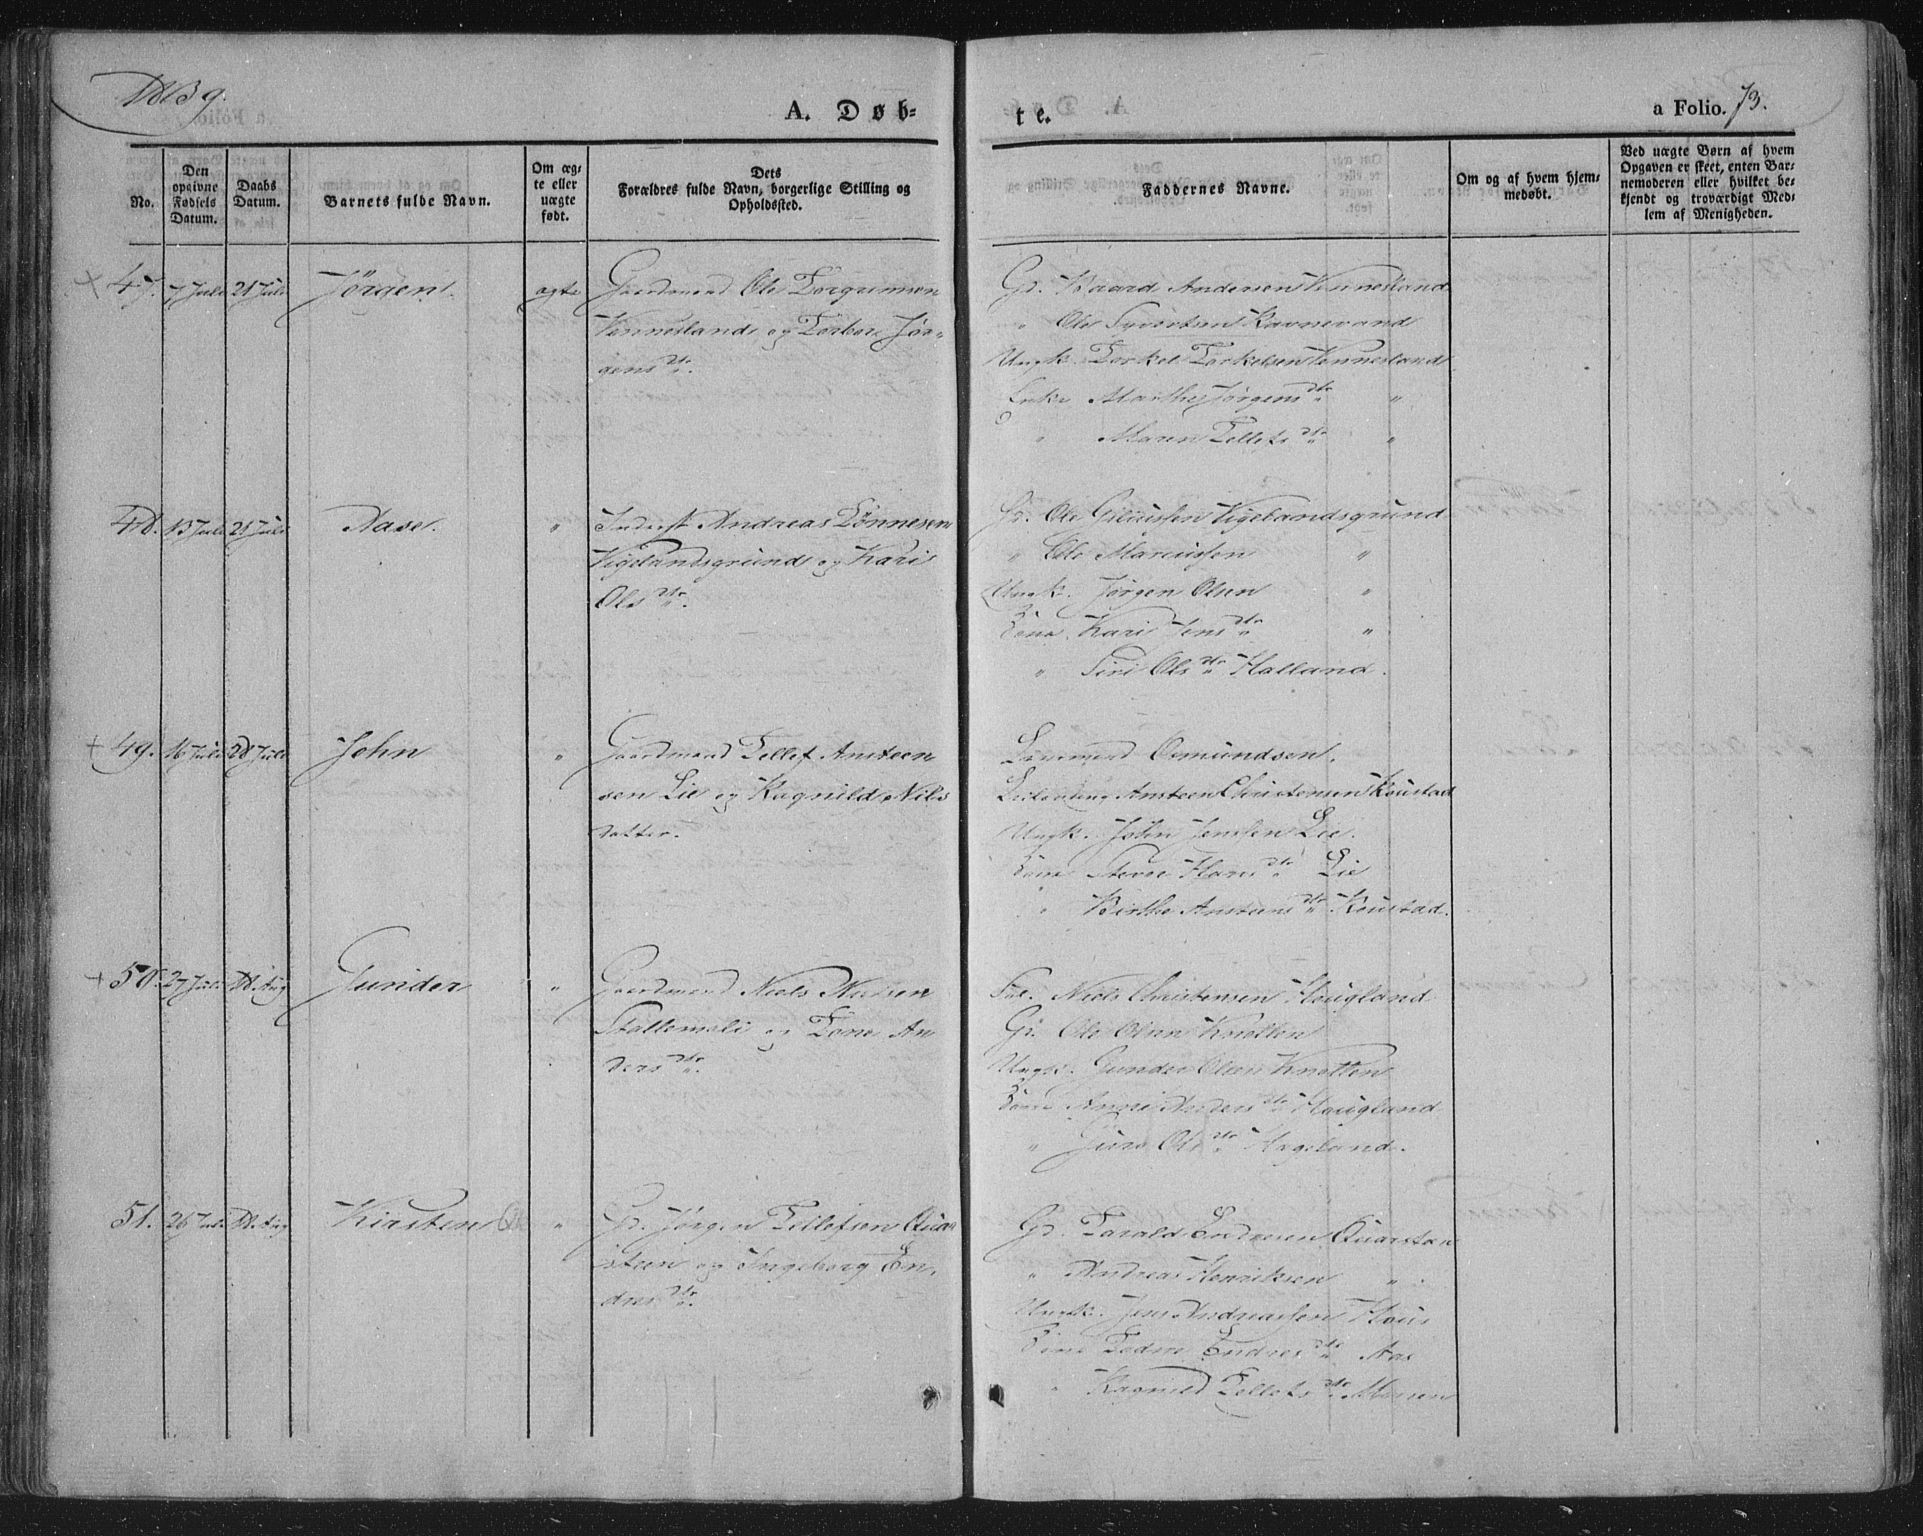 1839.
A. Døb-
te.
a Folio. 73.
No.
Den opgivne Fødsels Datum.
Daabs Datum.
Barnets fulde Navn.
Om ægte eller uægte født.
Dets
Forældres fulde Navn, borgerlige Stilling og
Opholdssted.
Faddernes Navne.
Om og af hvem hjem-
medøbt.
Ved uægte Børn af hvem
Opgaven er skeet, enten Bar-
nemoderen eller hvilket be-
kjendt og troværdigt Med-
lem af Menigheden.
47. 7 Juli 21 Juli Jörgen. ægte Gaardmand Ole Torgrimsen
Vennesland og Torbor Jör-
gens dtr.
Gr. Baard Andersen Vennesland
" Ole Syvertsen Ravnevand
Ungk. Torkel Torkelsen Vennesland
Enke Marthe Jörgens dtr "
" Maren Tellefs dtr "
48. 13 Juli 21 Juli Aase. " Inderst Andreas Tönnesen
Vigelandsgrund og Kari
Ols dtr.
Gr. Ole Vigelandsgrund
" Ole Marcussen "
Ungk. Jörgen Olsen "
Kone Kari Jens dtr "
" Siri Ols dtr Halland.
49. 16 Juli 28 Juli John " Gaardmand Tellef Ansteen
sen Lie og Ragnild Nils
datter.
Osmundsen.
Ansteen Christensen Roustad
Ungk. John Jenssen Lie.
Kone Hans dtr Lie
" Birthe Ansteens dtr Roustad.
50. 27 Juli 18. Aug Gunder " Gaardmand Niels Nielsen
Stallemoli og Tone An
ders dtr.
Niels Christensen Hougland
Gr. Ole Olsen Knotten
Ungk. Gunder Olsen Knotten
Kone Anne Anders dtr Hougland
" Ols dtr Hageland.
51. 26 Juli 18. Aug Kirsten " Gr. Jörgen Tellefsen Qua
steen og Ingeborg En,
dres dtr.
Gr. Tarald Endresen
" Andreas Henriksen "
Ungk. Jens Andreassen
Endres dtr Aas
" Ragnild Tellefs dtr Moseen